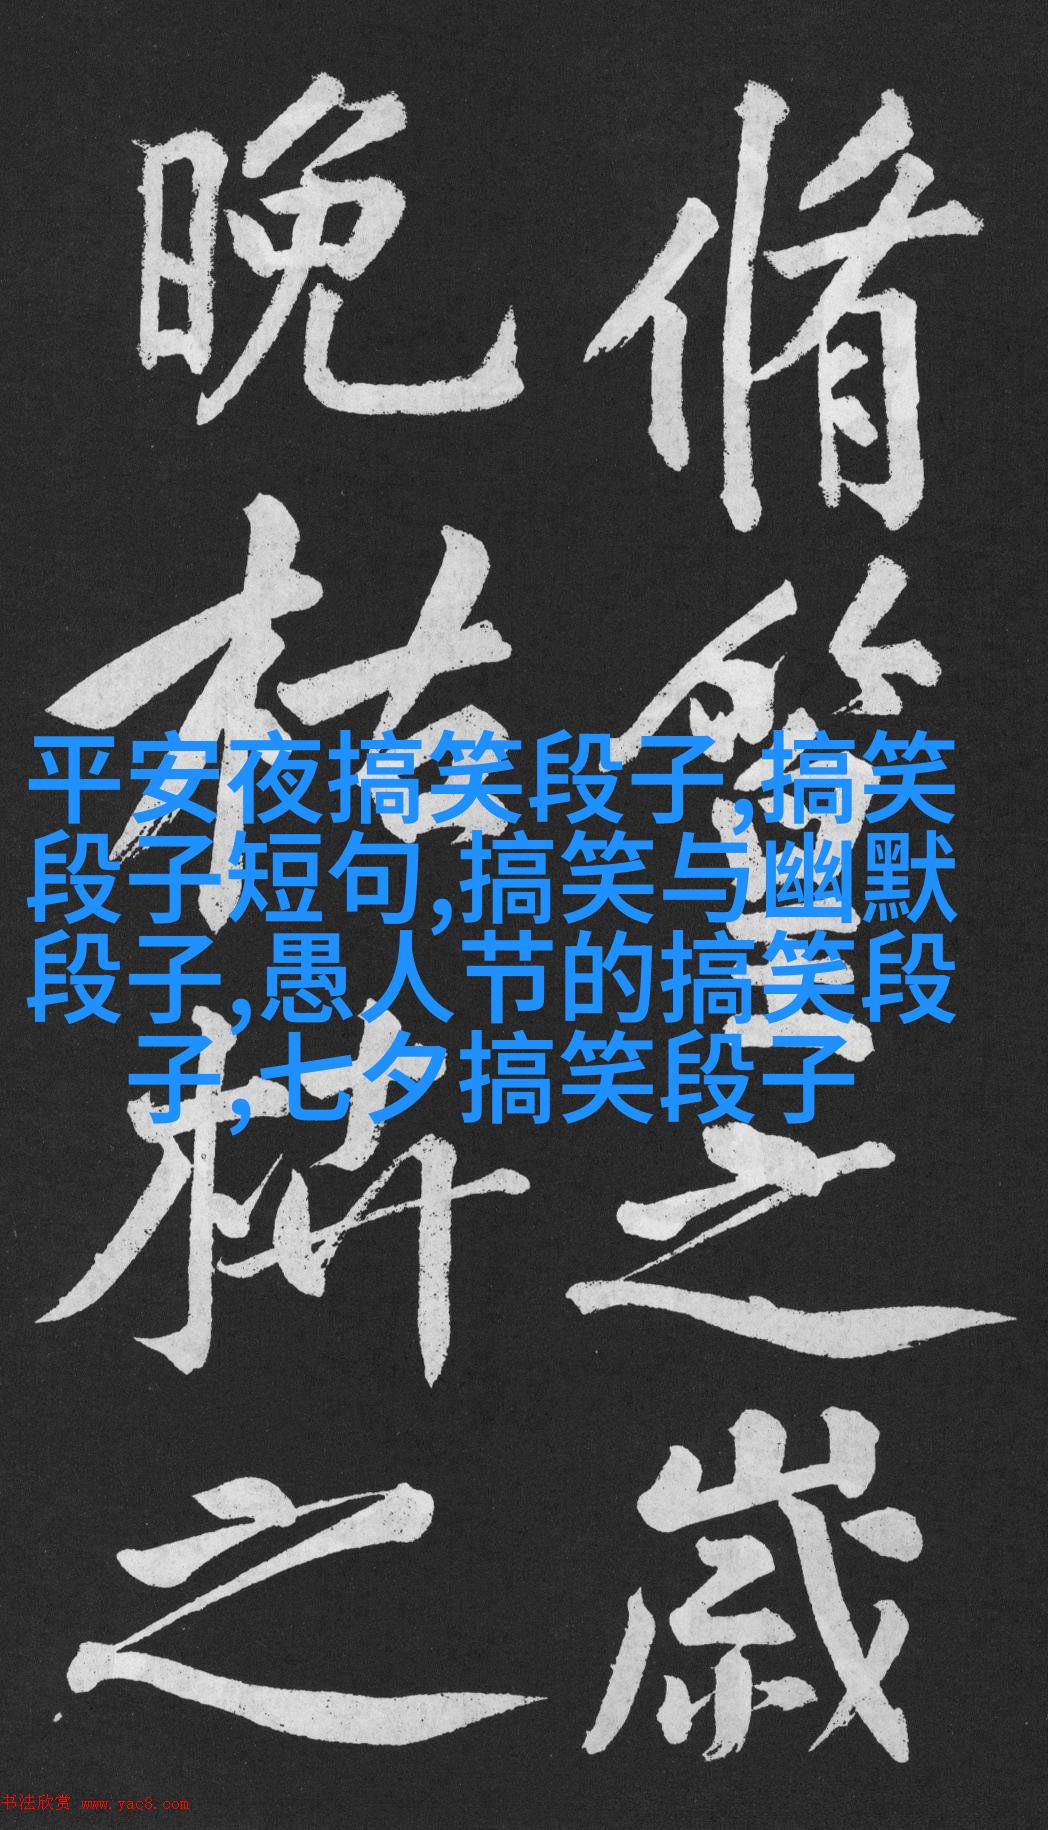 脩篁之歲
晚枯枿之
平安夜搞笑段子,搞笑
段子短句,搞笑与幽默
段子,愚人节的搞笑段
子,七夕搞笑段子
书法欣赏 www.yac8.com